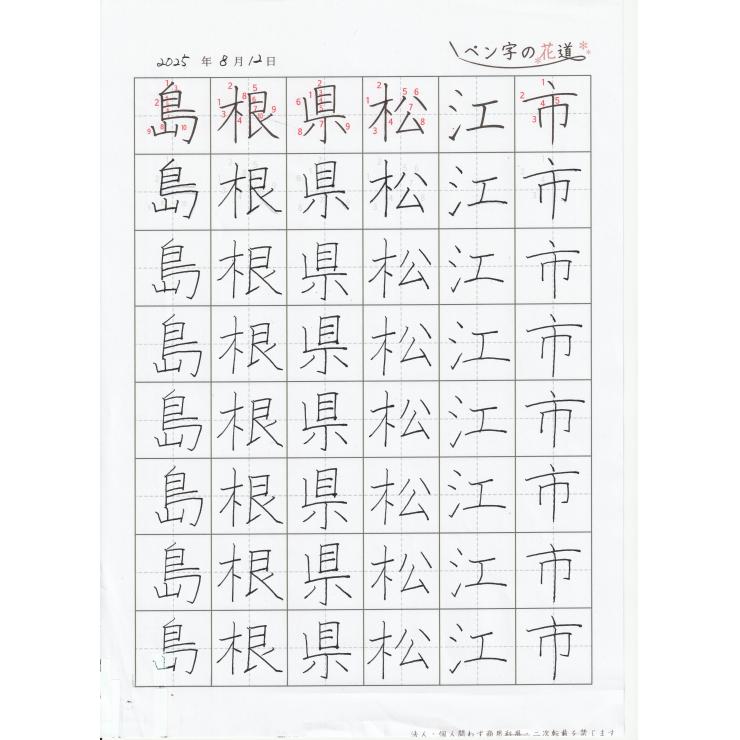 2025年8月12日
ペン字の花道
島根県松江市
島根県松江市
島根県松江市
島根県松江市
島根県松江市
島根県松江市
島根県松江市
島根県松江市
法人・個人問わず商用利用・二次転載を禁じます